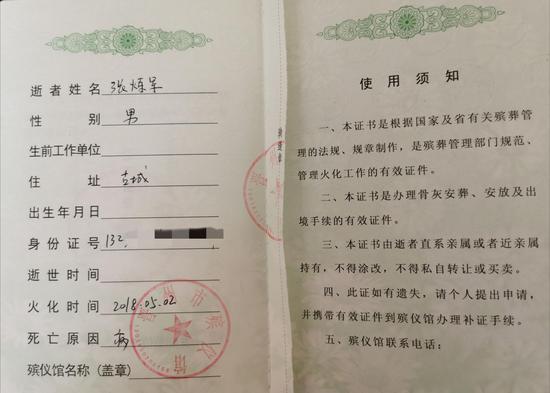 逝者姓名 张炼军
性别 男
生前工作单位
住址 古城
出生年月日
身份证号 132
逝世时间
火化时间 2018.05.02
死亡原因 病
殡仪馆名称(盖章)
市殡仪馆
使用须知
一、本证书是根据国家及省有关殡葬管
理的法规、规章制作,是殡葬管理部门规范、
管理火化工作的有效证件。
二、本证书是办理骨灰安葬、安放及出
境手续的有效证件。
三、本证书由逝者直系亲属或者近亲属
持有,不得涂改,不得私自转让或买卖。
四、此证如有遗失,请个人提出申请,
并携带有效证件到殡仪馆办理补证手续。
五、殡仪馆联系电话: